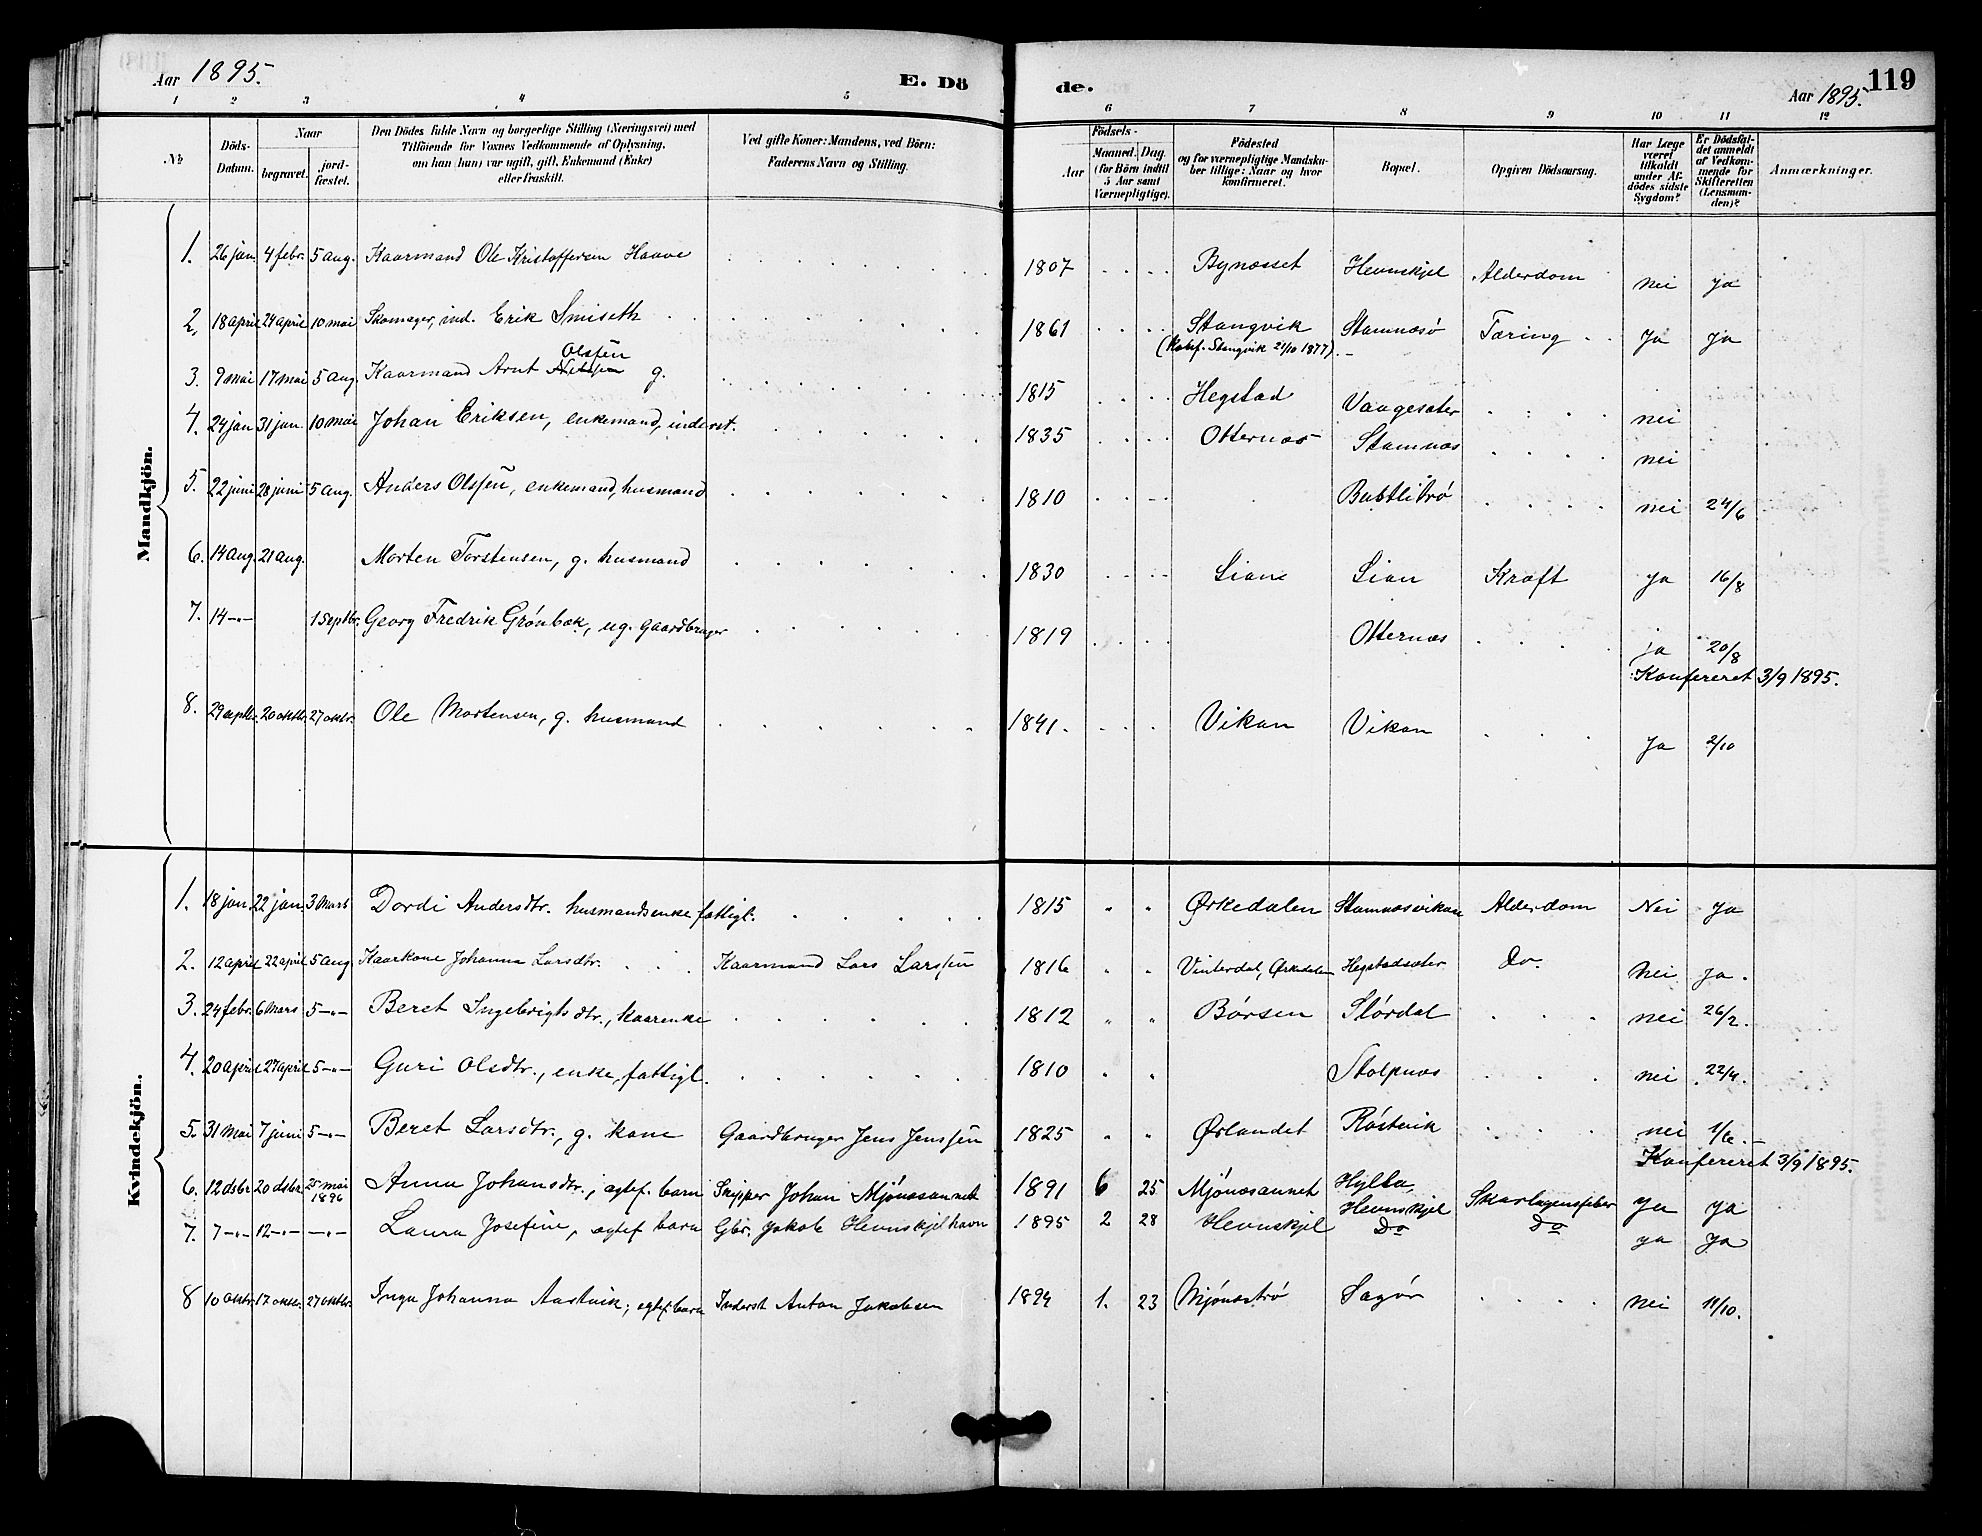 Aar 1895. E. Dö de. Aar 1895. 119
1 2 3 4 5 6 7 8 9 10 11 12
No
Döds-Datum.
Naar
begravet.
jord-fæstet.
Den Dödes fulde Navn og borgerlige Stilling (Næringsvei) med
Tilföiende for Voxnes Vedkommende af Oplysning,
om han (hun) var ugift, gift, Enkemand (Enke)
eller fraskilt.
Ved gifte Koner: Mandens, ved Börn:
Faderens Navn og Stilling.
Födsels-
Aar
Maaned. Dag.
(for Börn indtil
5 Aar samt
Værnepligtige).
Födested
og for værnepligtige Mandska-
ber tillige: Naar og hvor
konfirmeret.
Bopæl.
Opgiven Dödsaarsag.
Har Læge
været
tilkaldt
under Af-
dödes sidste
Sygdom?
Er Dödsfal-
det anmeldt
af Vedkom-
mende for
Skifteretten
(Lensman-
den)?
Anmærkninger.
Mandkjön.
1. 26 jan. 4 febr. 5 aug. Kaarmand Ole Kristoffersen Haave 1807 Bynæsset Hevnskjel Alderdom nei ja
2. 18 april 24 april 10 mai Skomager, ind. Erik Smiseth 1861 Stangvik Stamnæsø Tæring Ja ja
(Konf. Stangvik 21/10 1877).
Olssen
3. 9 mai 17 mai 5 aug. Kaarmand Arnt Nilssen g. 1815 Hegstad Vaagesæter nei
4. 24 jan 31 jan. 10 mai Johan Eriksen, enkemand, inderst. 1835 Otternæs Stamnæs nei
5. 22 juni 28 juni 5 aug. Anders Olssen, enkemand, husmand 1810 nei 24/6
6. 14 aug. 21 aug. Morten Torstensen, g. husmand 1830 Lian Kræft ja 16/8
7. 14 -"- 1 Septbr. Georg Fredrik Grönbæk, ug. gaardbruger 1819 Otternæs ja 20/8
Konfereret 3/9 1895.
8. 29 septbr. 20 oktbr. 27 oktbr. Ole Mortensen, g. husmand 1841. Vikan Vikan Ja 2/10
Kvindekjön.
1. 18 jan. 22 jan. 3 Mars Dordi Andersdtr. husmandsenke fattigl. 1815 " " Ørkedalen Stamnæsvikan Alderdom Nei ja
2. 12 april 22 april 5 aug. Kaarkone Johanna Larsdtr. Kaarmand Lars Larssen 1816 " " Vinterdal, Ørkedalen Hegstadsæter Do. Nei ja.
3. 24 febr. 6 Mars 5 -"- Beret Ingebrigtsdtr., kaarenke 1812 " " Börsen Slördal nei 26/2.
4. 20 april 27 april 5 -"- Guri Olsdtr., enke, fattigl. 1810 " " Stolpnæs nei 22/4.
5. 31 Mai 7 juni 5 -"- Beret Larsdtr., g. kone Gaardbruger Jens Jenssen 1825 " " Ørlandet Röstvik nei 1/6. -
Konfereret 3/9 1895.
6. 12 dsbr. 20 dsbr. 25 mai 1896 Anna Johansdtr., ægtef. barn Skipper Johan Mjönæsaunet 1891 6 25 Mjönæsaunet Hylla, Hevnskjel Skarlagensfeber ja ja
7. 7 -"- 12 -"- -"- Laura Josefine, ægtef barn Gbr. Jakob Hevnskjelhavn 1895 2 28 Hevnskjel Do Do ja ja
8 10 oktbr. 17 oktbr. 27 oktbr. Inga Johanna Aastvik, egtef. barn Inderst Anton Jakobsen 1894 1. 23 Mjönæströ Sagör nei 11/10.